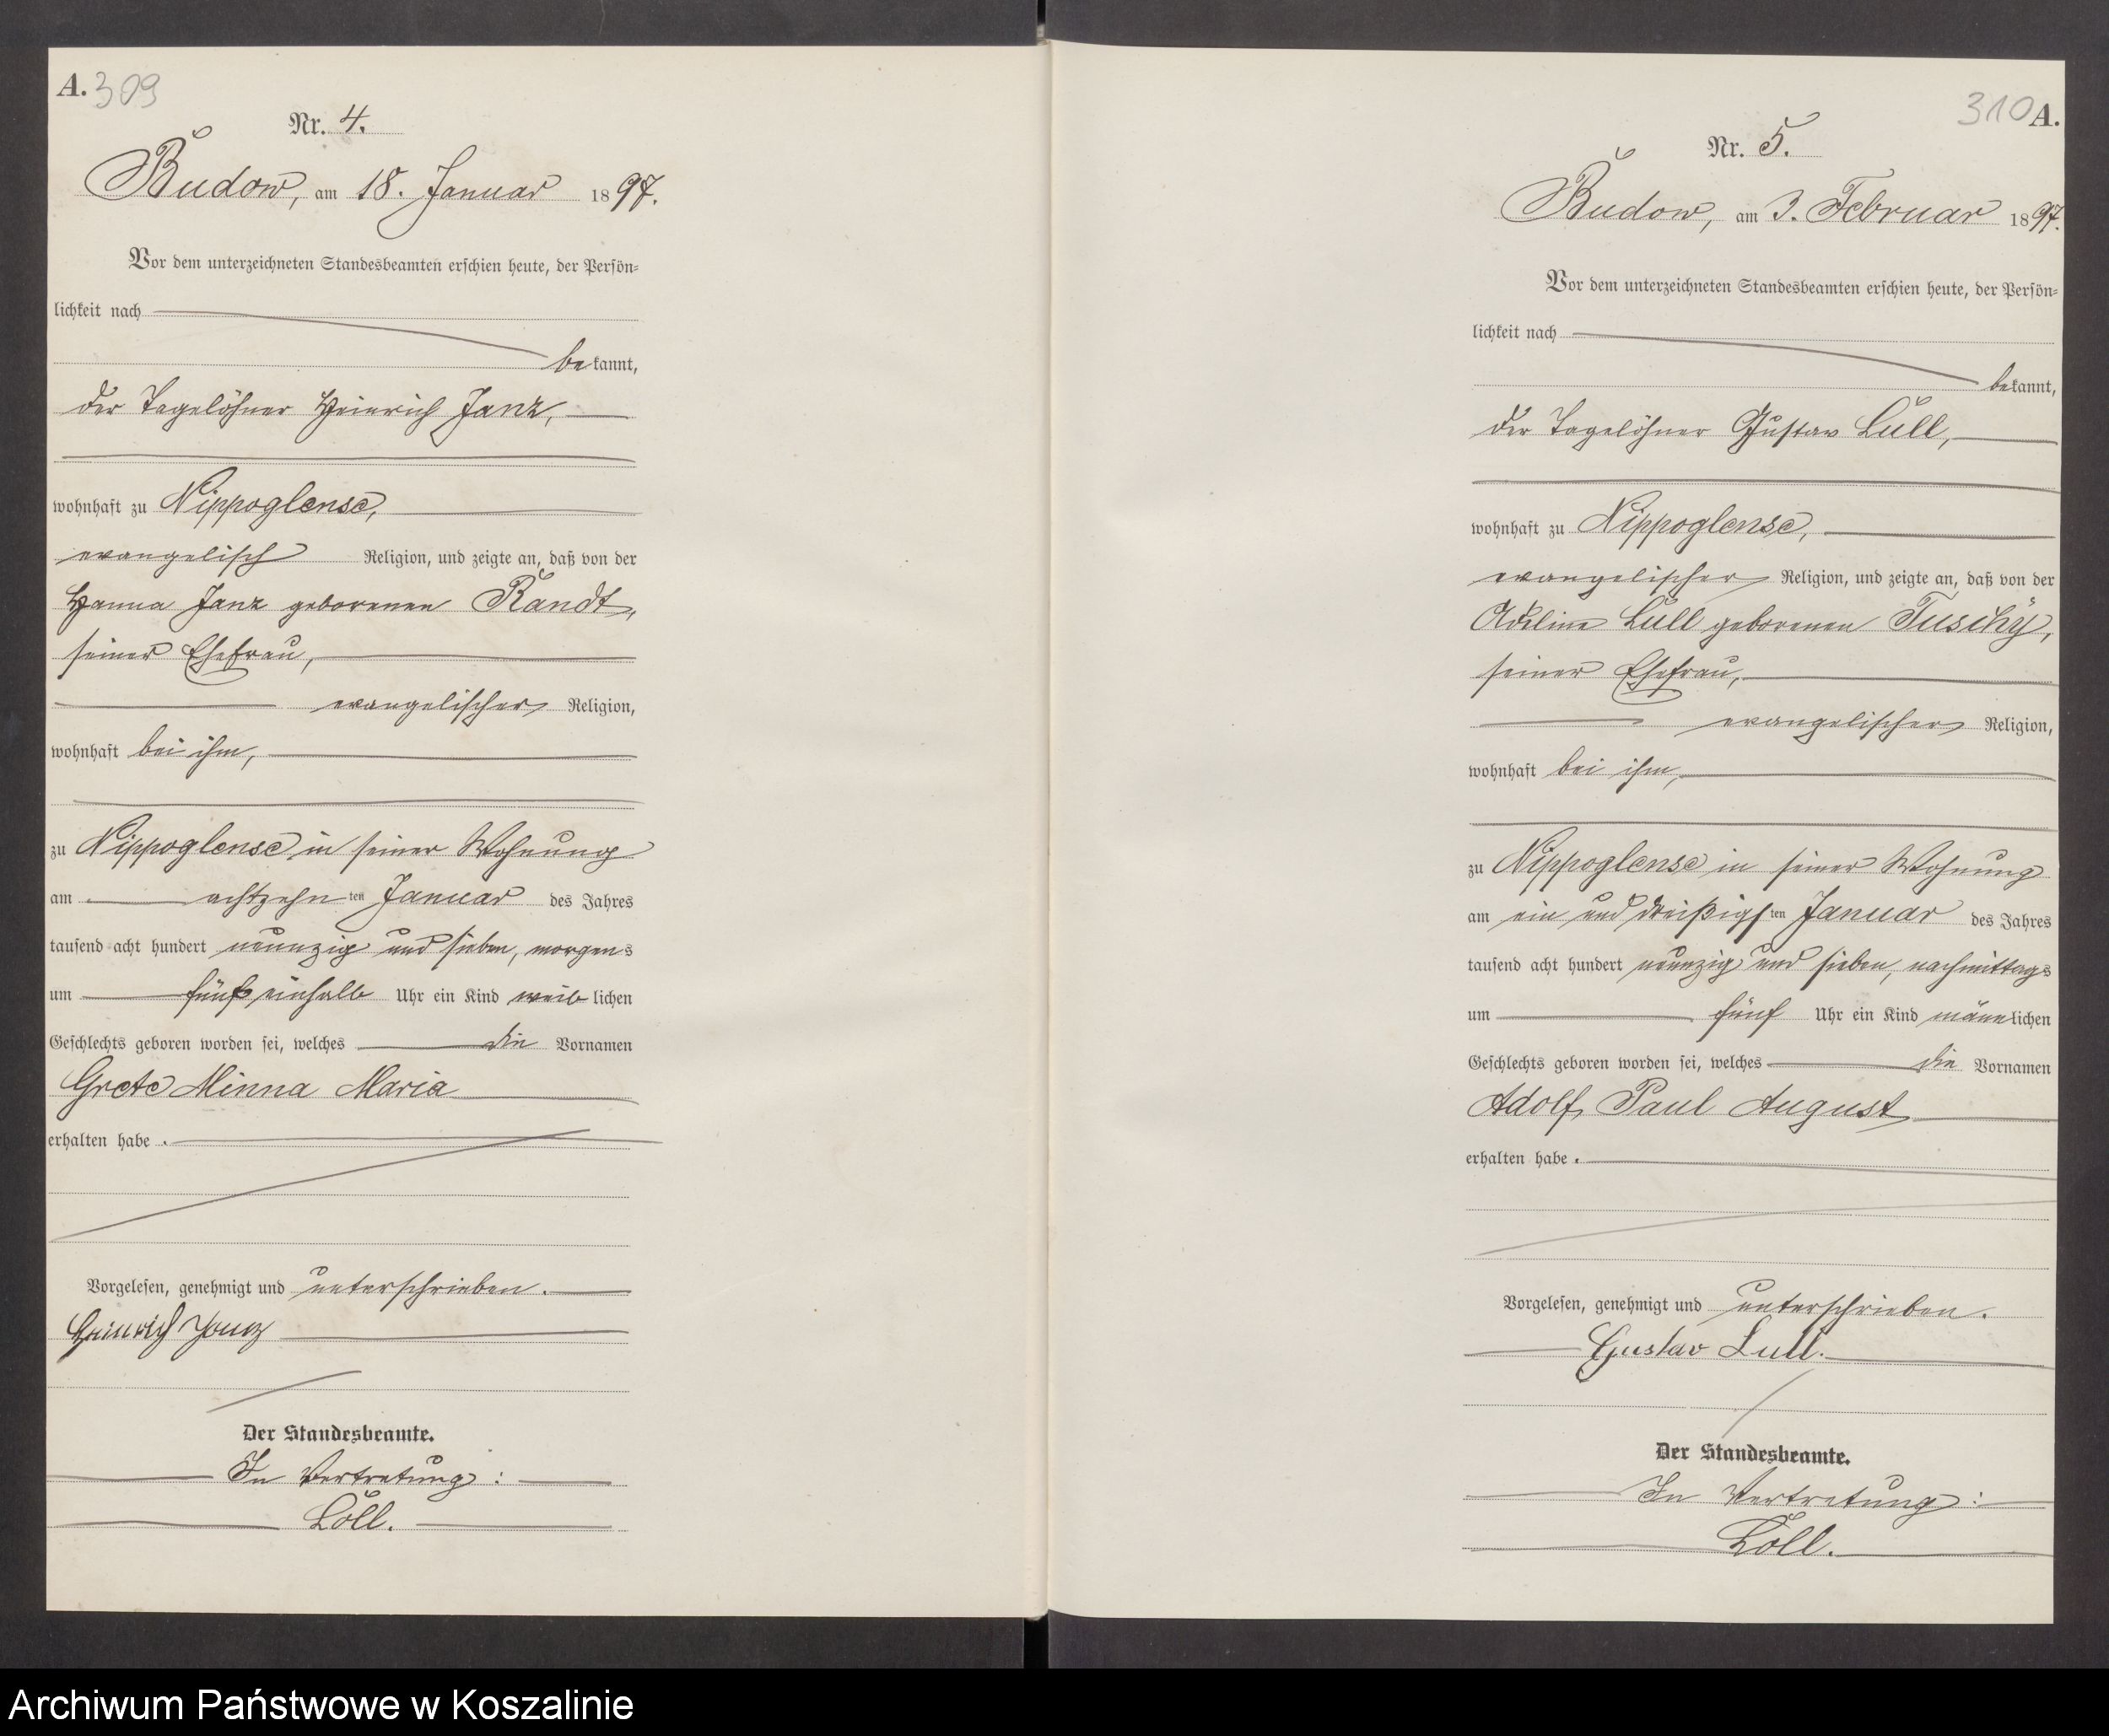 A. 309
Nr. 4.
Budow, am 18. Januar 1897.
Vor dem unterzeichneten Standesbeamten erschien heute, der Persön-
lichkeit nach
bekannt,
der Tagelöhner Heinrich Janz,
wohnhaft zu Nippoglense,
evangelisch Religion, und zeigte an, daß von der
Hanna Janz geborenen Randt,
seiner Ehefrau,
evangelischer Religion,
wohnhaft bei ihm,
zu Nippoglense in seiner Wohnung
am achtzehnten Januar des Jahres
tausend acht hundert neunzig und sieben, morgens
um fünf einhalb Uhr ein Kind weiblichen
Geschlechts geboren worden sei, welches die Vornamen
Grete Minna Maria
erhalten habe.
Vorgelesen, genehmigt und unterschrieben.
Heinrich Janz
Der Standesbeamte.
In Vertretung:
Löll.
310 A.
Nr. 5.
Budow, am 3. Februar 1897.
Vor dem unterzeichneten Standesbeamten erschien heute, der Persön-
lichkeit nach
bekannt,
der Tagelöhner Gustav Lull,
wohnhaft zu Nippoglense,
evangelischer Religion, und zeigte an, daß von der
Adeline Lull geborenen Tuschÿ,
seiner Ehefrau,
evangelischer Religion,
wohnhaft bei ihm,
zu Nippoglense in seiner Wohnung
am ein und dreißigsten Januar des Jahres
tausend acht hundert neunzig und sieben, nachmittags
um fünf Uhr ein Kind männlichen
Geschlechts geboren worden sei, welches die Vornamen
Adolf Paul August
erhalten habe.
Vorgelesen, genehmigt und unterschrieben.
Gustav Lull.
Der Standesbeamte.
In Vertretung:
Löll.
Archiwum Państwowe w Koszalinie